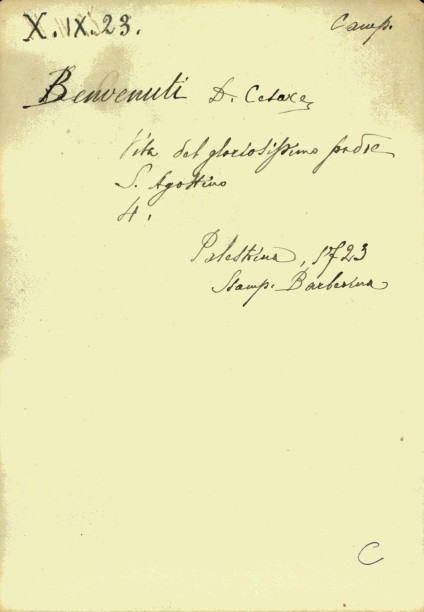 X. IX. 23.
Camp.
Benvenuti D. Cesare
Vita del gloriosissimo padre
S. Agostino
4.
Palestrina, 1723
Stamp. Barberina
C